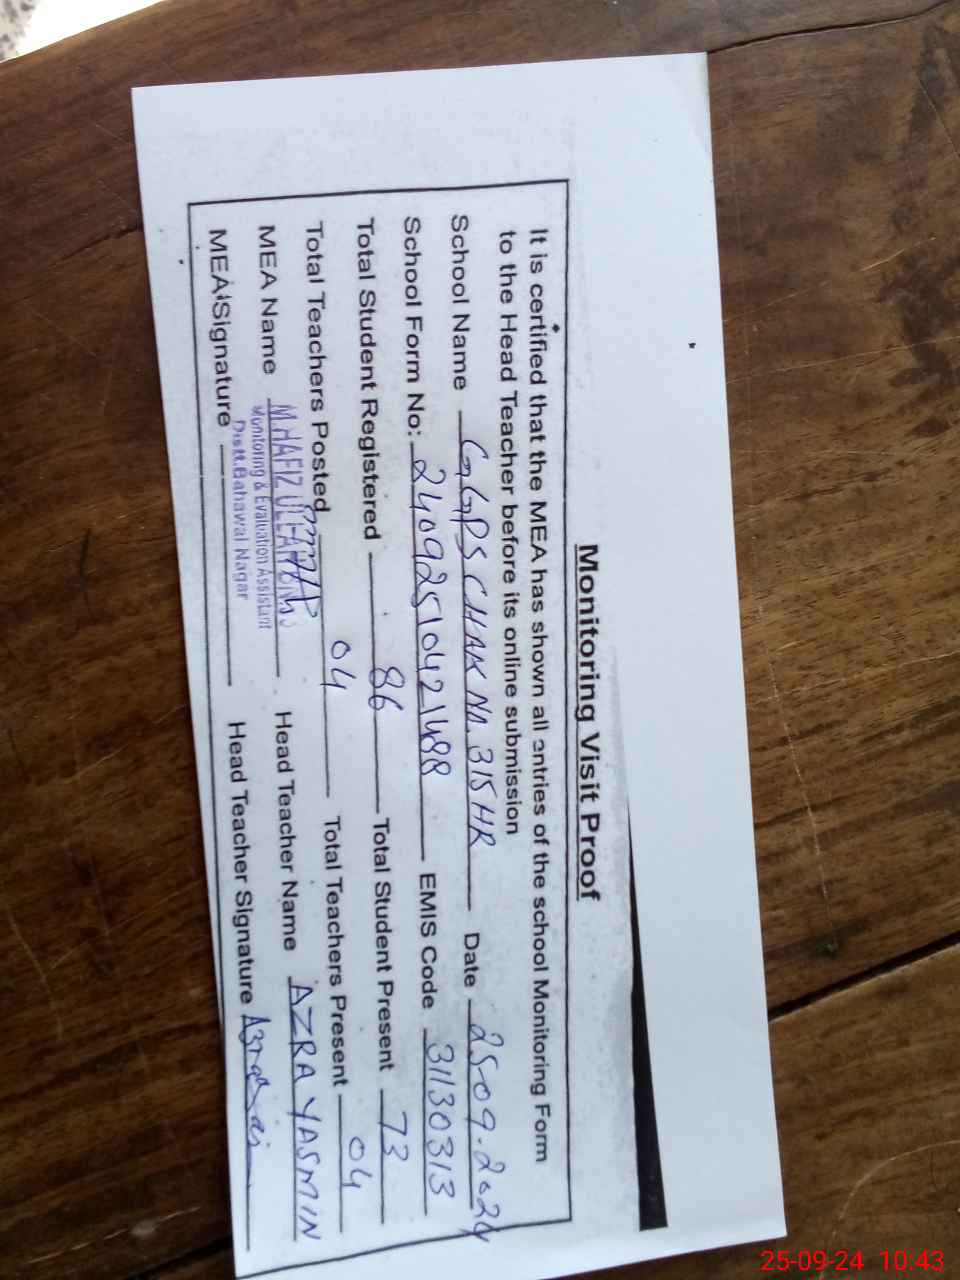 Monitoring Visit Proof
It is certified that the MEA has shown all entries of the school Monitoring Form
to the Head Teacher before its online submission
School Name GGPS CHAK NO. 315 HR Date 25-09-2024
School Form No: 24092510421488 EMIS Code 31130313
Total Student Registered 86 Total Student Present 73
Total Teachers Posted 04 Total Teachers Present 04
MEA Name M.HAFIZ Head Teacher Name AZRA YASMIN
Monitoring & Evaluation Assistant
Distt.Bahawal Nagar
MEA Signature Head Teacher Signature
25-09-24 10:43